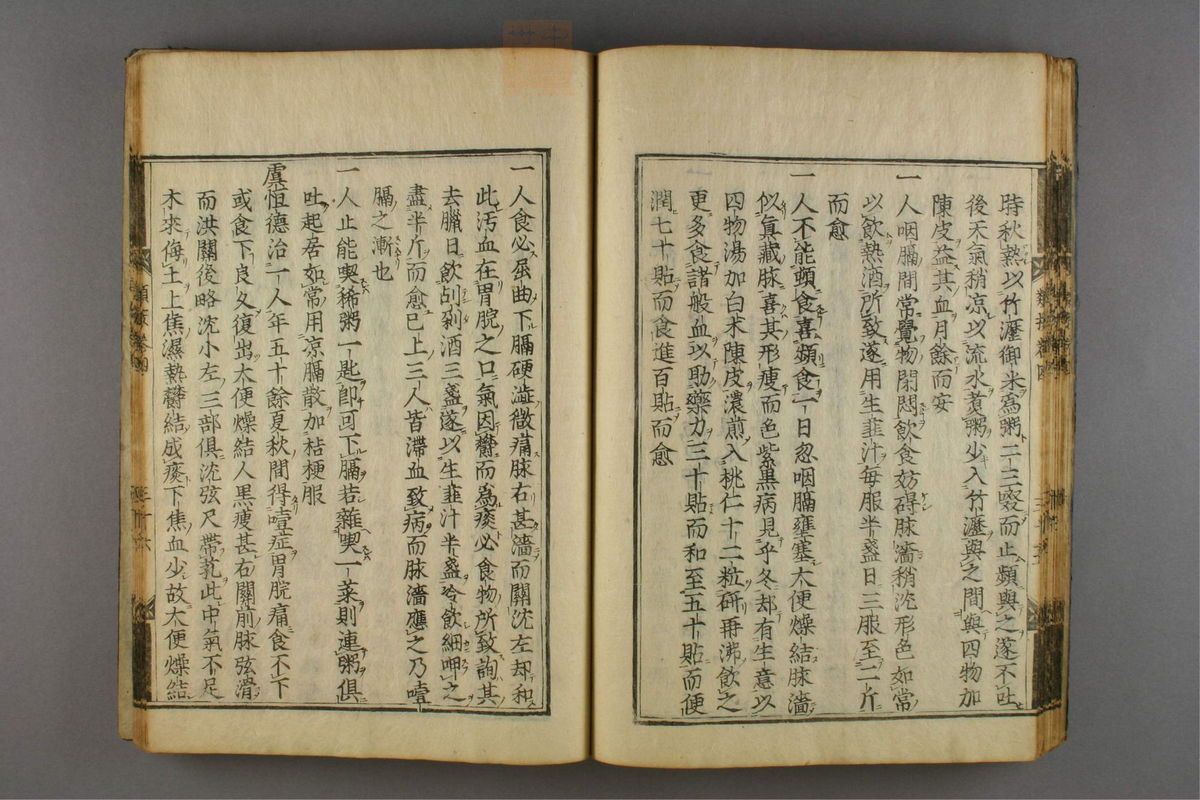 時秋熱以竹瀝御米爲粥二三啜而止頻與之遂不吐
後天氣稍凉以流水煑粥少入竹瀝與之間與四物加
陳皮益其血月餘而安
一人咽膈間常覺物閉悶飲食妨碍脉濇稍沈形色如常
以飲熱酒所致遂用生韮汁每服半盞日三服至二斤
而愈
一人不能頓食喜頻食一日忽咽膈壅塞大便燥結脉濇
似眞藏脉喜其形瘦而色紫黒病見乎冬却有生意以
四物湯加白朮陳皮濃煎入桃仁十二粒研再沸飲之
更多食諸般血以助藥力三十貼而和至五十貼而便
潤七十貼而食進百貼而愈
一人食必屈曲下膈硬澁微痛脉右甚濇而關沈左却和
此汚血在胃脘之口氣因鬱而爲痰必食物所致詢其
去臘日飲刮剁酒三盞遂以生韮汁半盞冷飲細呷之
盡半斤而愈已上三人皆滯血致病而脉濇應之乃噎
膈之漸也
一人止能喫稀粥一匙即可下膈若雜喫一菜則連粥俱
吐起居如常用凉膈散加桔梗服
虞恒德治一人年五十餘夏秋間得噎症胃脘痛食不下
或食下良久復出大便燥結人黒瘦甚右關前脉弦滑
而洪關後略沈小左三部俱沈弦尺帶芤此中氣不足
木來侮土上焦濕熱鬱結成痰下焦血少故大便燥結